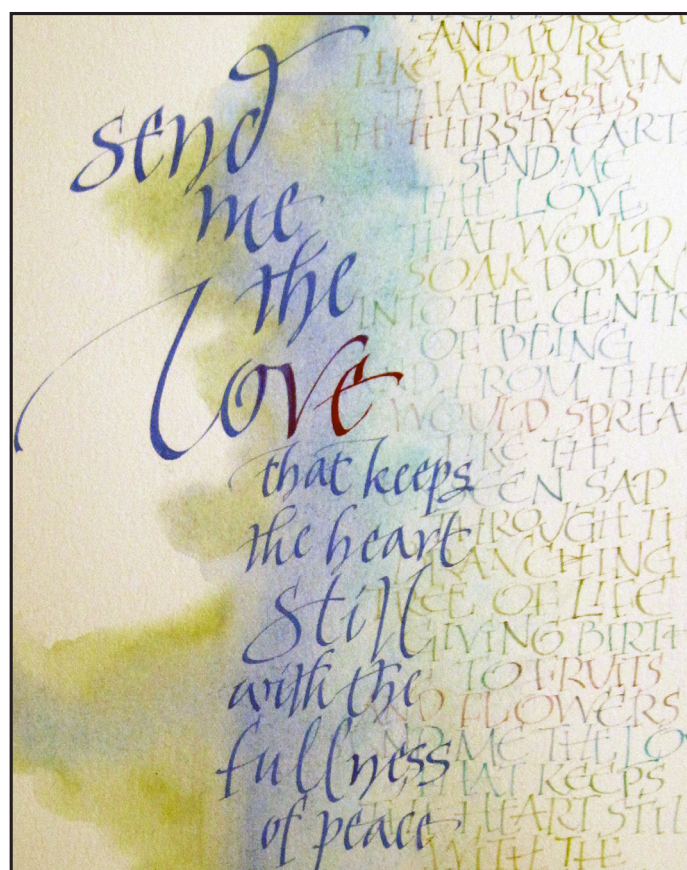 send
me
the
Love
that keeps
the heart
still
with the
fullness
of peace
AND PURE
LIKE YOUR RAIN
THAT BLESSES
THE THIRSTY EARTH
SEND ME
THE LOVE
THAT WOULD
SOAK DOWN
INTO THE CENTR
OF BEING
FROM THE
WOULD SPREA
LIKE THE
SAP
THROUGH TH
BRANCHING
TREE OF LIFE
GIVING BIRTH
TO FRUITS
AND FLOWERS
SEND ME THE LOV
THAT KEEPS
THE HEART STILL
WITH THE